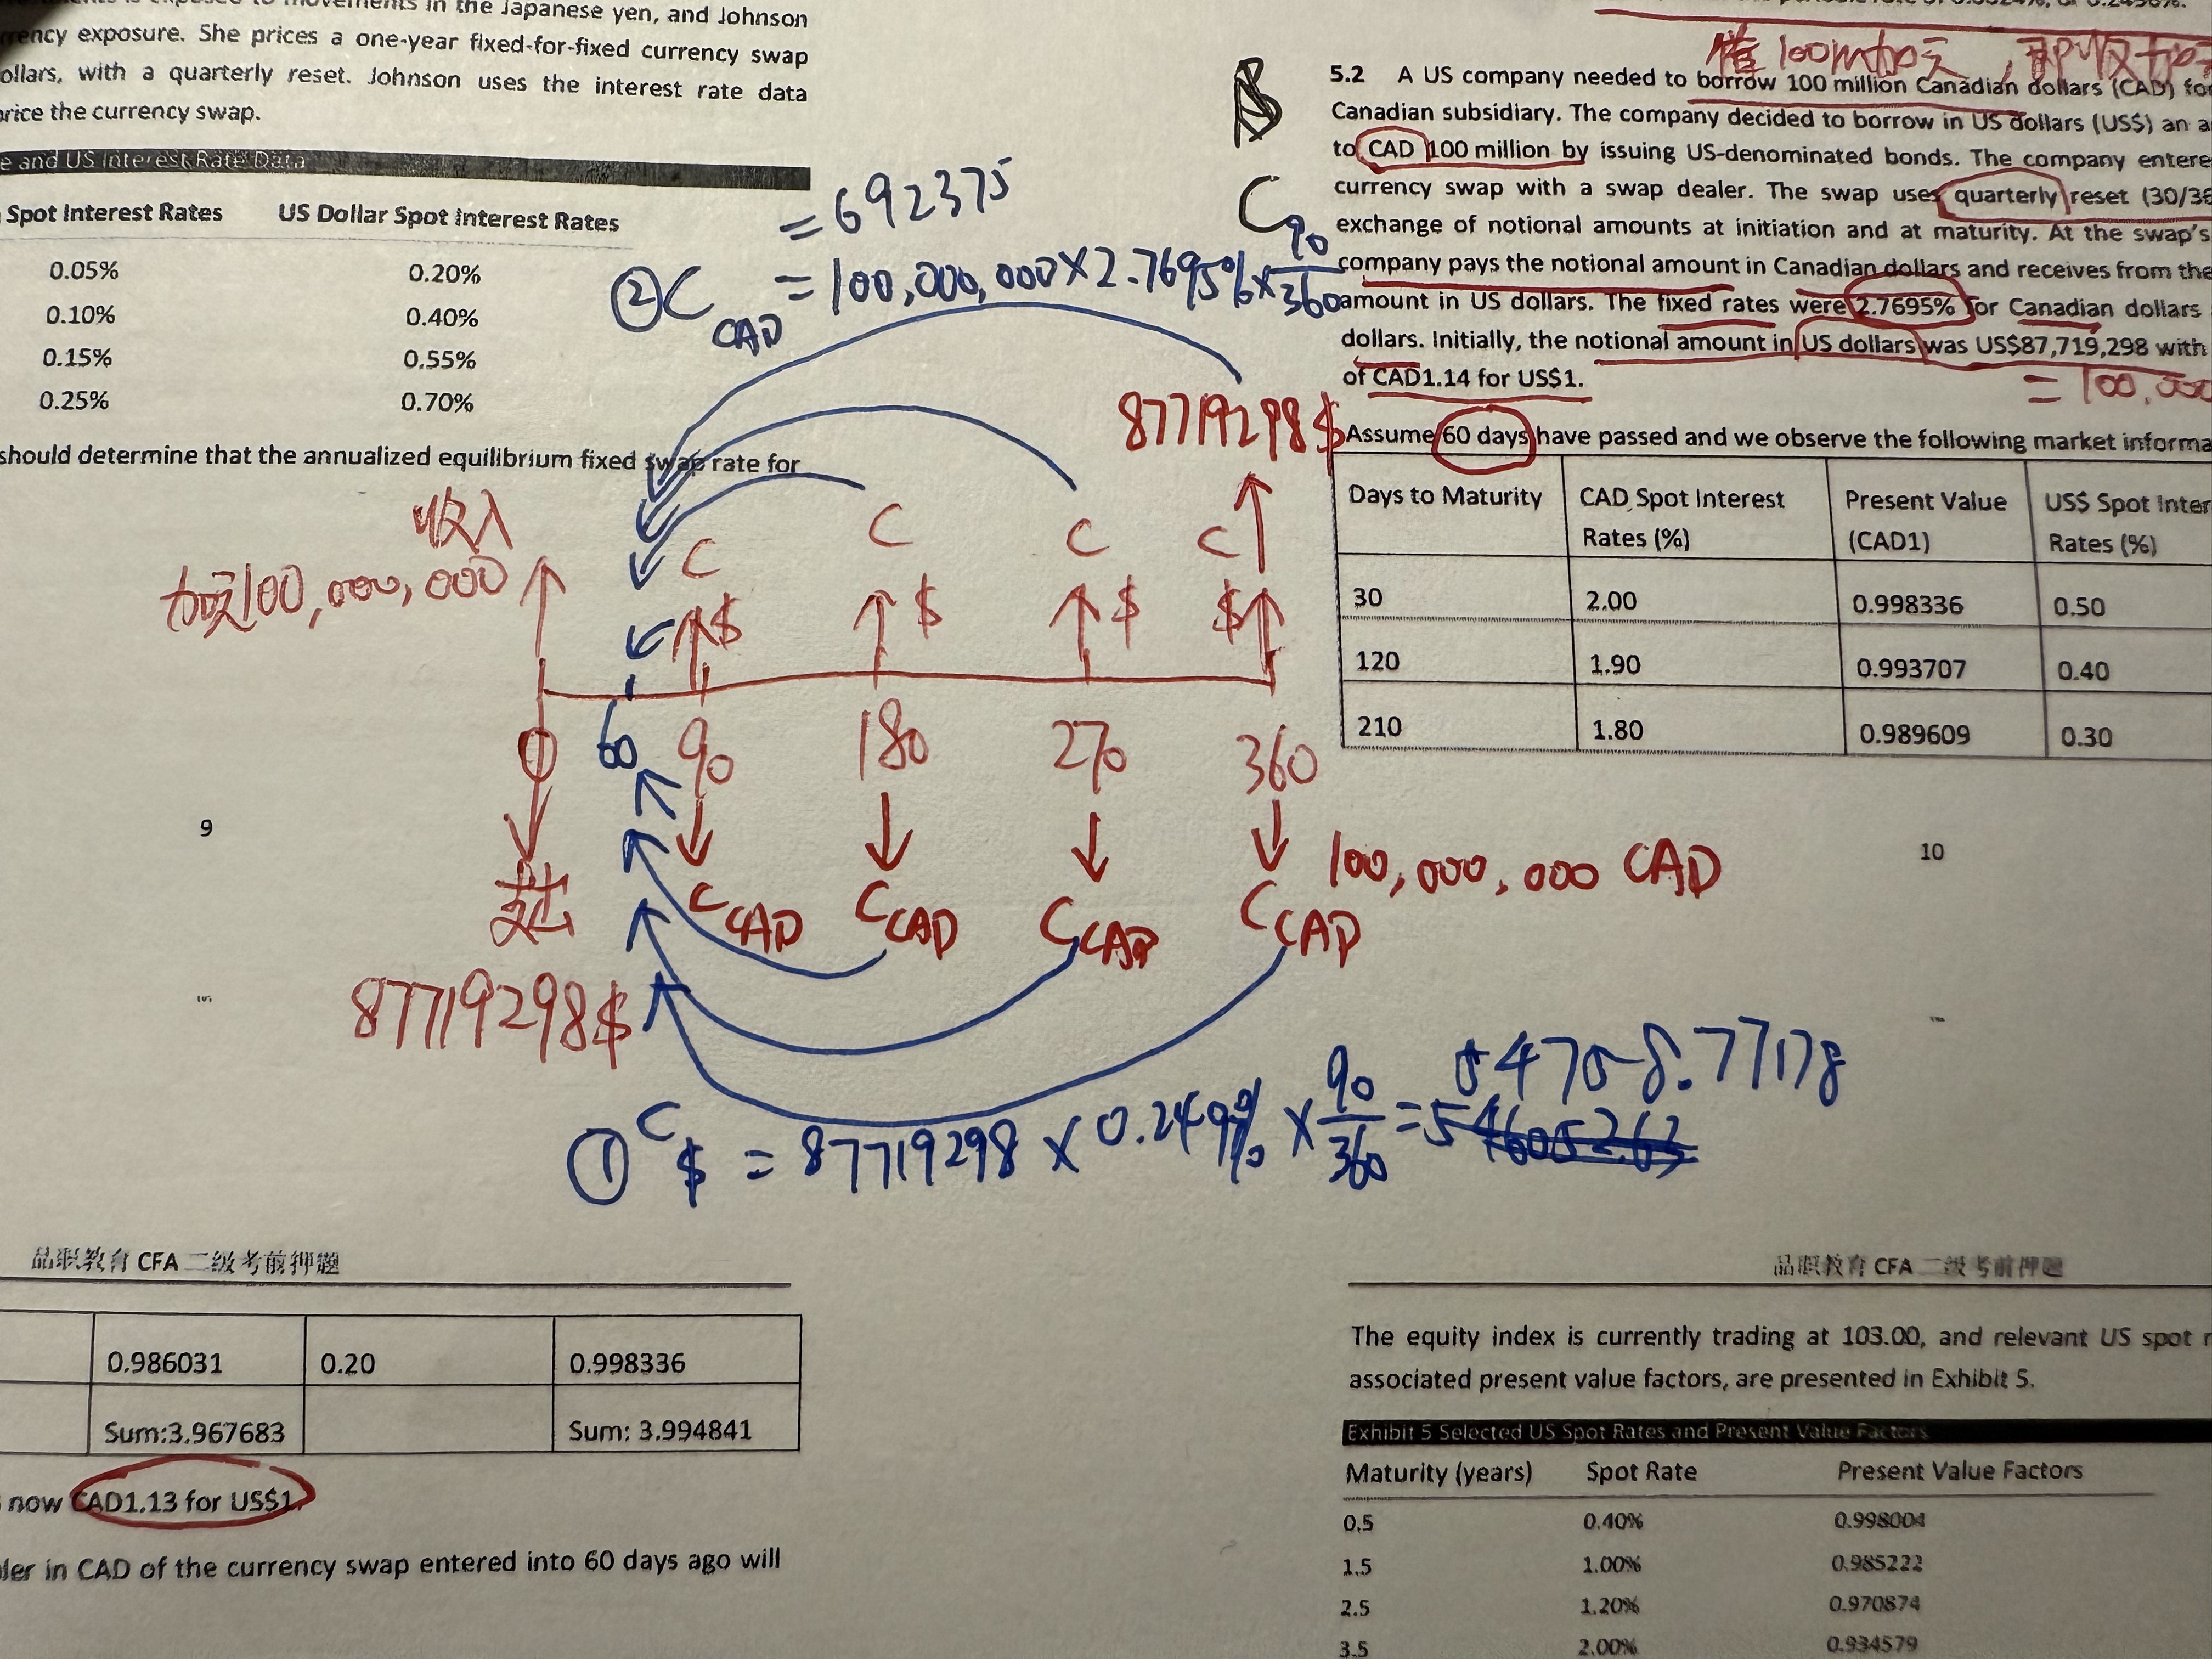 movements in the Japanese yen, and Johnson
currency exposure. She prices a one-year fixed-for-fixed currency swap
ollars, with a quarterly reset. Johnson uses the interest rate data
price the currency swap.
e and US Interest Rate Data
Spot Interest Rates US Dollar Spot Interest Rates
0.05% 0.20%
0.10% 0.40%
0.15% 0.55%
0.25% 0.70%
should determine that the annualized equilibrium fixed swap rate for
= 692375
② C CAD = 100,000,000 × 2.7695% × 90/360
收入
加元100,000,000
C C C C
$ $ $ $
87719298$
0 60 90 180 270 360
支出
C CAD C CAD C CAD C CAD
100,000,000 CAD
87719298$
① C $ = 87719298 × 0.249% × 90/360 = 54758.77178
9
借100m加元
B
C
5.2 A US company needed to borrow 100 million Canadian dollars (CAD) for
Canadian subsidiary. The company decided to borrow in US dollars (US$) an a
to CAD 100 million by issuing US-denominated bonds. The company entere
currency swap with a swap dealer. The swap uses quarterly reset (30/36
exchange of notional amounts at initiation and at maturity. At the swap's
company pays the notional amount in Canadian dollars and receives from the
amount in US dollars. The fixed rates were 2.7695% for Canadian dollars
dollars. Initially, the notional amount in US dollars was US$87,719,298 with
of CAD1.14 for US$1.
= 100,000
Assume 60 days have passed and we observe the following market informa
Days to Maturity CAD Spot Interest Rates (%) Present Value (CAD1) US$ Spot Inter Rates (%)
30 2.00 0.998336 0.50
120 1.90 0.993707 0.40
210 1.80 0.989609 0.30
10
品职教育 CFA 二级考前押题
0.986031 0.20 0.998336
Sum:3.967683 Sum: 3.994841
now CAD1.13 for US$1.
ler in CAD of the currency swap entered into 60 days ago will
品职教育 CFA 二级考前押题
The equity index is currently trading at 103.00, and relevant US spot r
associated present value factors, are presented in Exhibit 5.
Exhibit 5 Selected US Spot Rates and Present Value Factors
Maturity (years) Spot Rate Present Value Factors
0.5 0.40% 0.998004
1.5 1.00% 0.985222
2.5 1.20% 0.970874
3.5 2.00% 0.934579